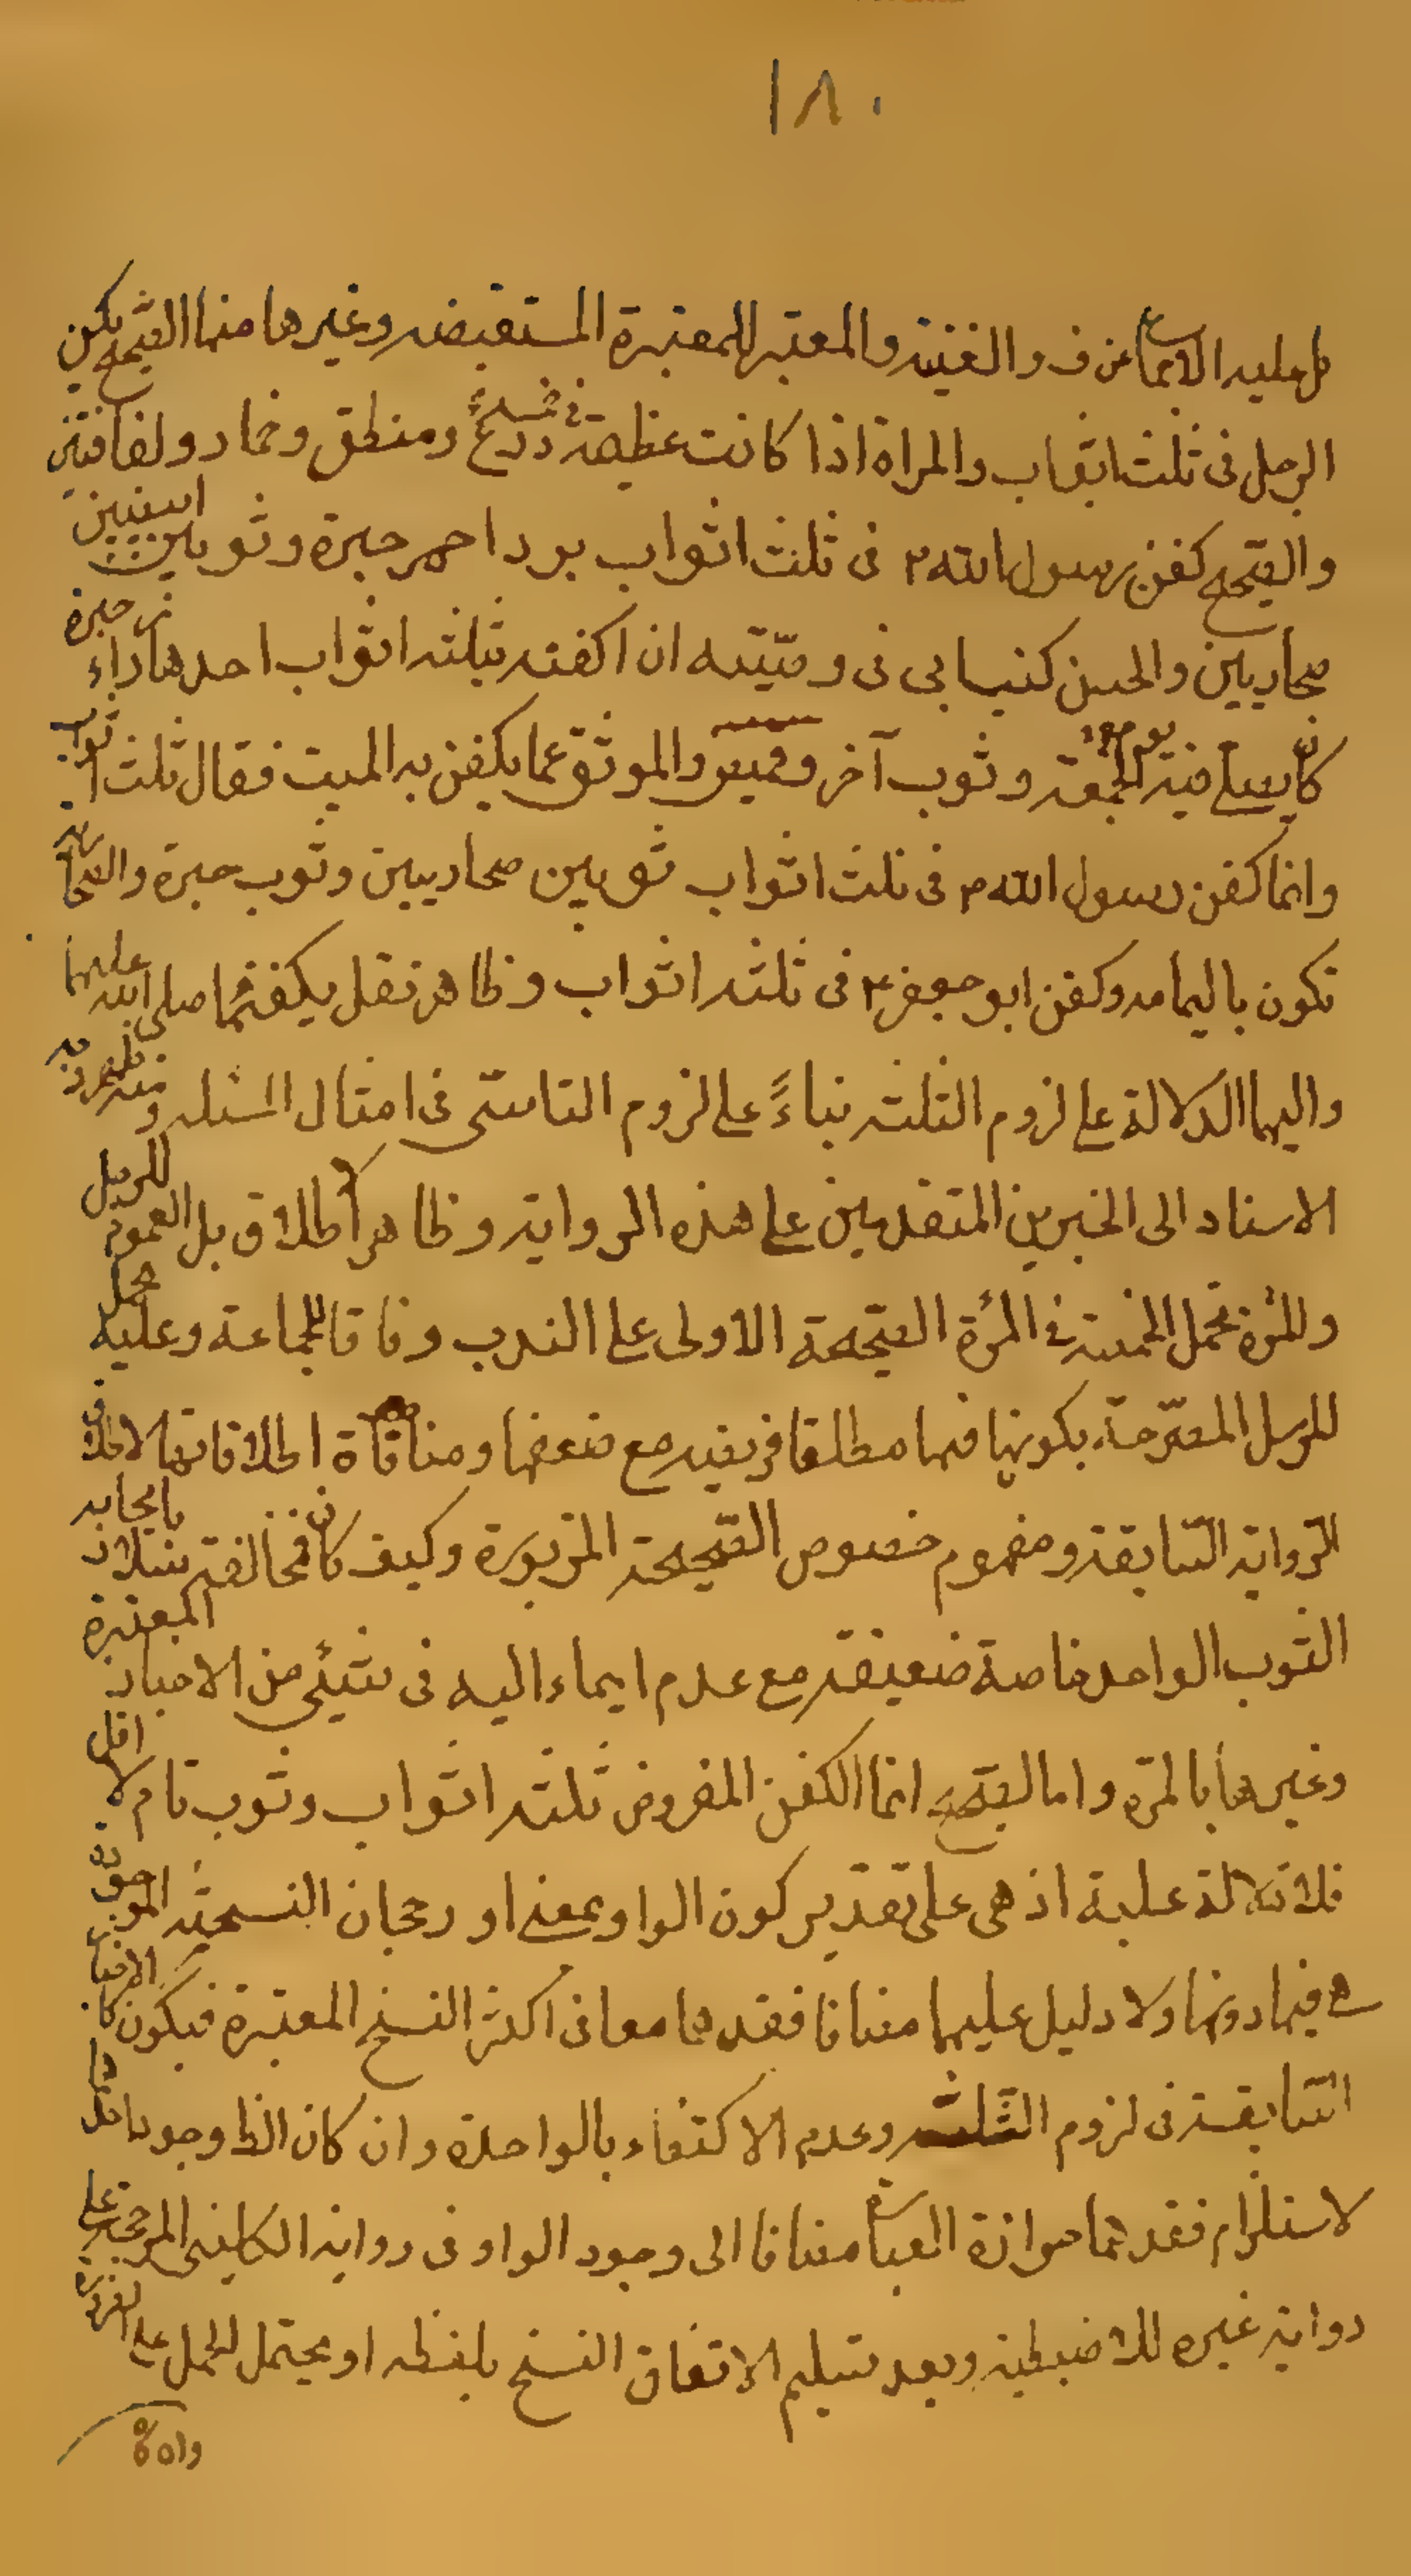 ١٨٠
بل عليه الاجماع عن ف والغنية والمعتبر للمعتبرة المستفيضة وغيرها منها الصحيح يكفن
الرجل فى ثلث اثواب والمراة اذا كانت عظيمة فى خمسة درع ومنطق وخمار ولفافتين
والصحيح كفن رسول الله ص فى ثلث اثواب برد احمر حبرة وثوبين ابيضين
صحاريين والحسن كتب ابى فى وصيّته ان اكفنه بثلثة اثواب احدها رداء له حبرة
كان يصلى فيه يوم الجمعة وثوب آخر وقميص والموثق عما يكفن به الميت فقال ثلث اثواب
وانما كفن رسول الله ص فى ثلث اثواب ثوبين صحاريين وثوب حبرة والصحارية
تكون باليمامه وكفن ابو جعفر ع فى ثلثة اثواب وظاهر نقل كفنهما صلى الله عليهما
واليهما الدلالة على لزوم الثلثه بناءً على لزوم التاسّى فى امثال المسئله و
الاسناد الى الخبرين المتقدمين على هذه الرواية وظاهر اطلاق بل العموم للرجل
وللمرئة تحمل الخمسة فى المرئة الصحيحة الاولى على الندب وفاقا للجماعة وعليه يحمل
للمرسل المصرّحة بكونها فيها مطلقا فريضه مع ضعفها ومنافاة اطلاقاتها لاطلاق
الرواية السّابقة ومفهوم خصوص الصّحيحة المزبورة وكيف كان فمخالفة سلار بايجابه
الثوب الواحد خاصة ضعيفة مع عدم ايماء اليه فى شيئى من الاخبار المعتبرة
وغيرها بالمرّة واما الصحيح انما الكفن المفروض ثلثه اثواب وثوب تام لا اقل
فلا دلالة عليه اذ هى على تقدير كون الواو بمعنى او رجحان النسخة الموجودة
هى فيها دونها ولا دليل عليهما مضافا فقدها معا فى اكثر النسخ المعتبرة فيكون كالاخبار
السّابقة فى لزوم الثّلثه وعدم الاكتفاء بالواحدة وان كان الظ وجودها
لاستلزام فقدهما حزازة العبارة مضافا الى وجود الواو فى رواية الكلينى المرجحة على
رواية غيره للاضبطية وبعد تسليم الاتفاق النسخ بلفظه او يحتمل الحمل على الضرورة